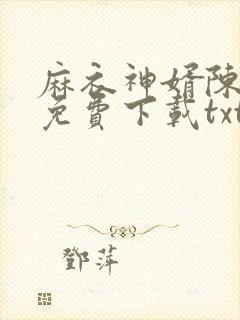 麻衣神婿陳
免費下載txt
鄧萍